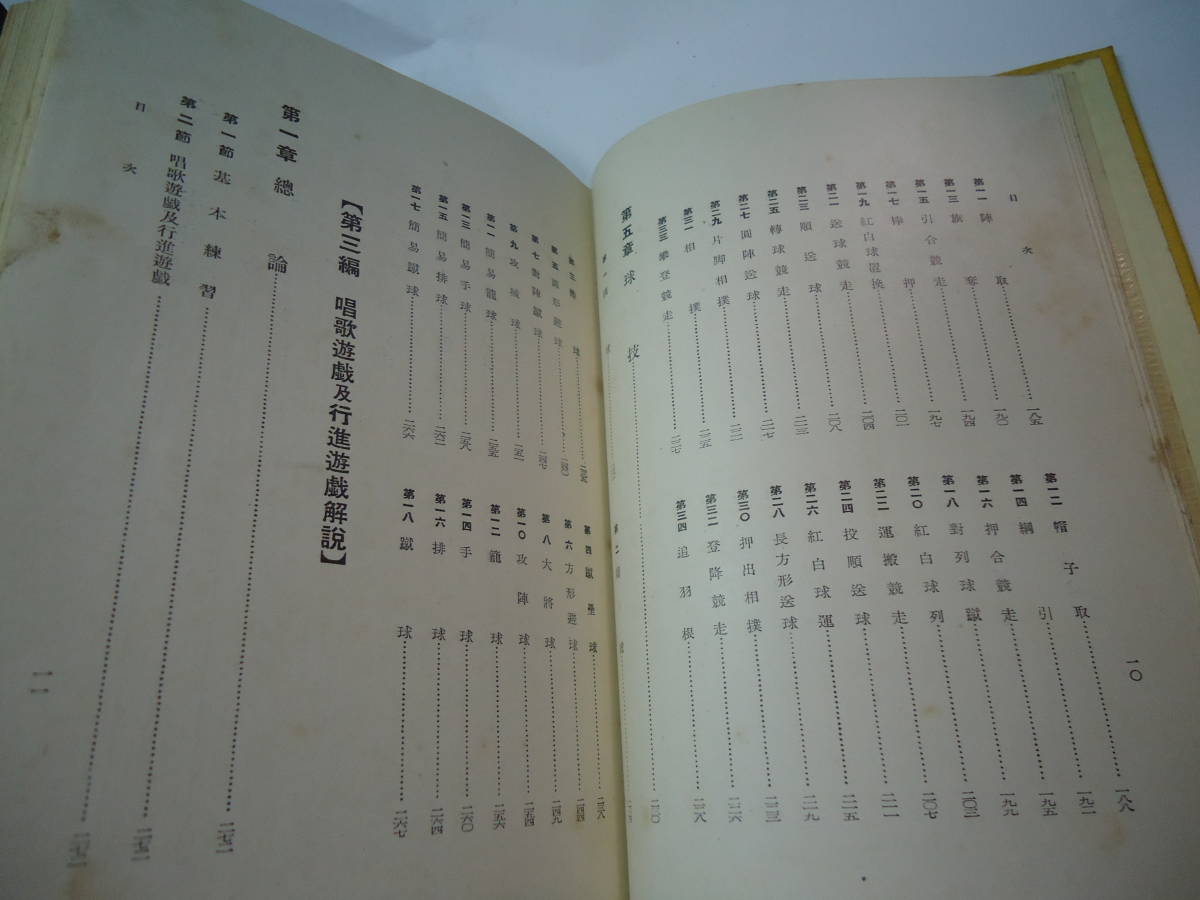 目次
第一一 陣取……一八五
第一二 帽子取……一八八
第一三 旗奪……一九〇
第一四 綱引……一九二
第一五 引合競走……一九四
第一六 押合競走……一九五
第一七 棒押……一九七
第一八 對列球蹴……一九九
第一九 紅白球置換……二〇一
第二〇 紅白球列……二〇三
第二一 送球競走……二〇四
第二二 運搬競走……二〇七
第二三 順送球……二〇八
第二四 投順送球……二一一
第二五 轉球競走……二一三
第二六 紅白球運……二一五
第二七 圓陣送球……二一七
第二八 長方形送球……二一九
第二九 片脚相撲……
第三〇 押出相撲……
第三一 相撲……
第三二 登降競走……二二六
第三三 攀登競走……二二七
第三四 追羽根……二二八
第五章 球技……
一〇
第四 蹴壘球……
第六 方形避球……二四四
第七 對陣蹴球……二四七
第八 大將球……二四九
第九 攻城球……二五一
第一〇 攻陣球……二五四
第一一 簡易籠球……二五五
第一二 籠球……二五六
第一三 簡易手球……二五九
第一四 手球……二六〇
第一五 簡易排球……二六二
第一六 排球……二六四
第一七 簡易蹴球……二六六
第一八 蹴球……二六七
【第三編 唱歌遊戲及行進遊戲解說】
第一章 總論……二七二
第一節 基本練習……二七二
第二節 唱歌遊戲及行進遊戲……
目次
一一